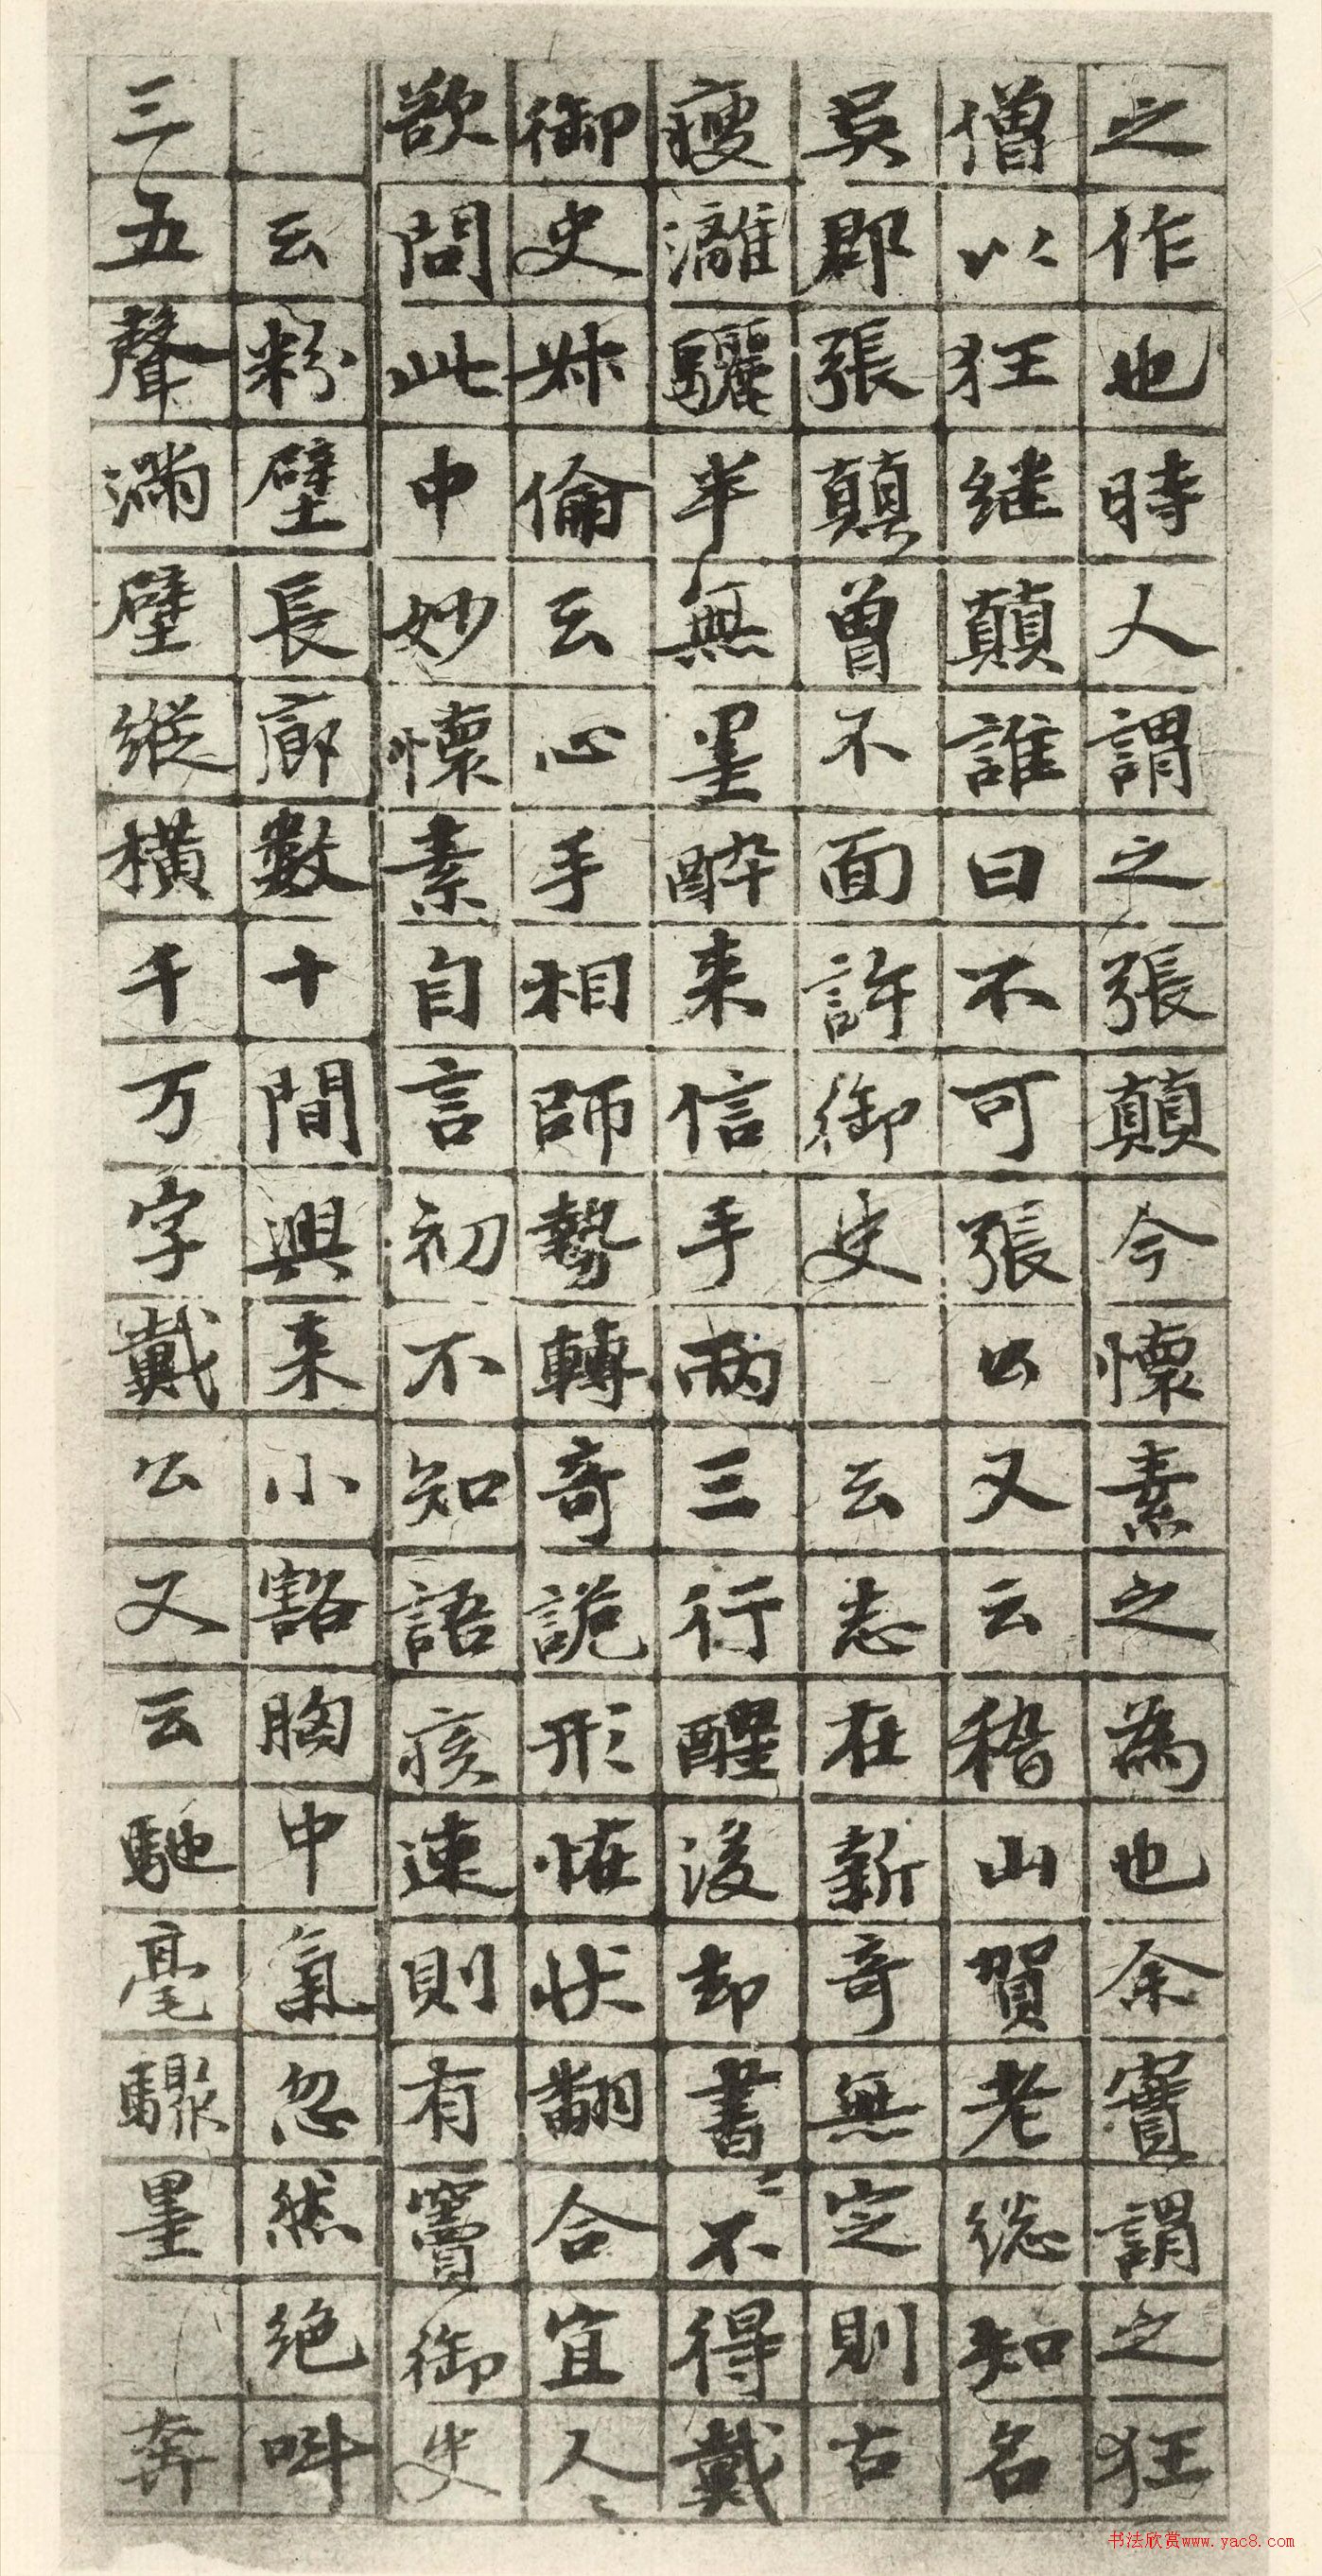 之作也時人謂之張顛今懷素之為也余實謂之狂
僧以狂继顛誰曰不可張公又云稽山賀老総知名
吴郡張顛曾不面許御史云志在新奇無定則古
瘦灕驪半無墨醉来信手兩三行醒後却書書不得戴
御史叔倫云心手相師勢轉奇詭形恠状翻合宜人人
欲問此中妙懷素自言初不知語疾速則有竇御史
云粉壁長廊數十間興来小豁胸中氣忽然絶叫
三五聲滿壁縱横千万字戴公又云馳毫驟墨奔
书法欣赏www.yac8.com